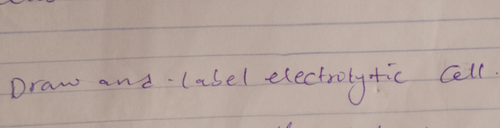 Draw and label electrolytic Cell.